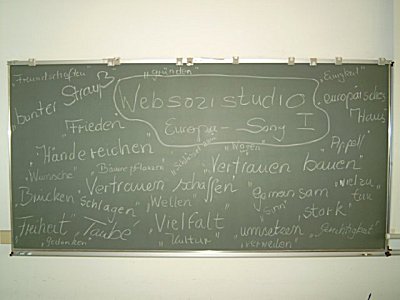 „Freundschaften"
„gründen"
„Einigkeit"
„bunter Strauß
Websozistudio
Europa - Song I
europäisches
Haus
Frieden
„Wagen"
Appell
„Händereichen
„Bäume pflanzen"
Vertrauen bauen"
„Wünsche"
„Vertrauen schaffen
Brücken schlagen"
„Wellen"
gemeinsam
„Sinn"
„stark"
Freiheit"
„Taube
„Vielfalt"
umsetzen
„Gerechtigkeit"
„Gedanken"
„Kultur"
„verweilen"